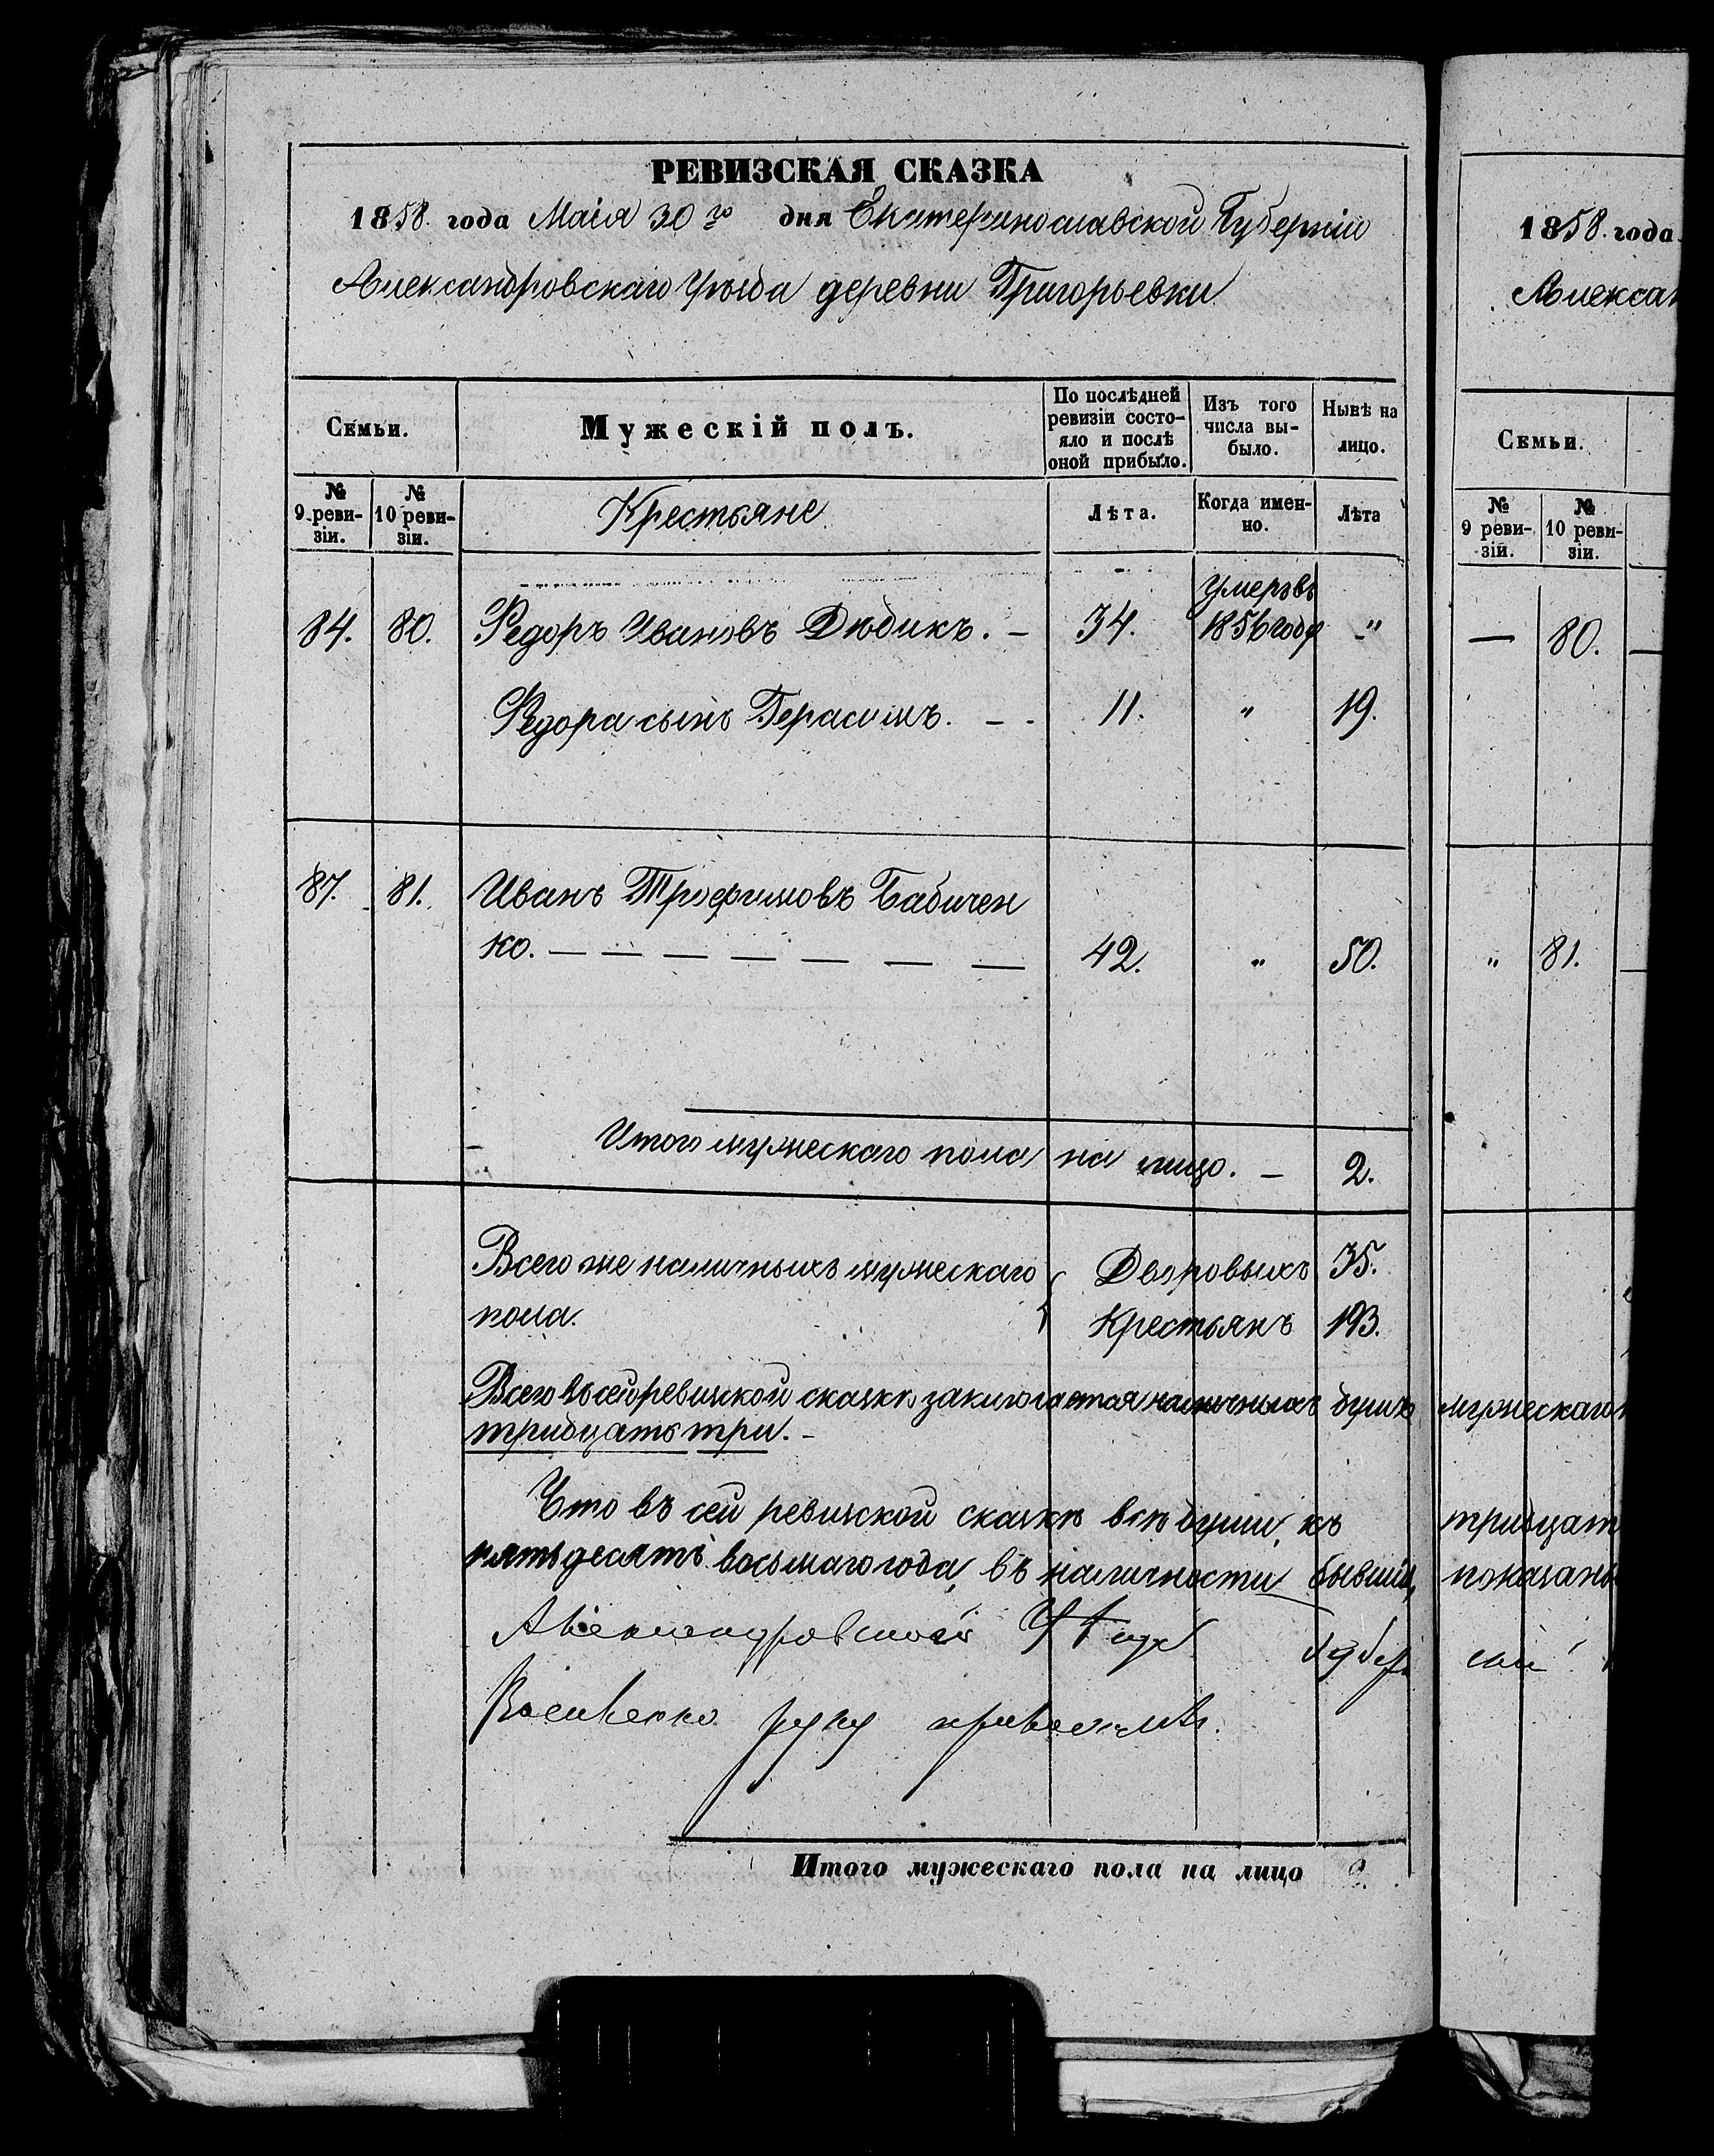 РЕВИЗСКАЯ СКАЗКА
1858. года Маія 30го дня Екатеринославской Губерніи
Александровскаго Уѣзда деревни Григорьевки
Семьи.
Мужескій полъ.
По послѣдней ревизіи состояло и послѣ оной прибыло.
Изъ того числа выбыло.
Нынѣ на лицо.
№ 9 ревизіи.
№ 10 ревизіи.
Крестьяне
Лѣта.
Когда именно.
Лѣта
Умеръ въ
84. 80. Федоръ Ивановъ Дюбикъ. – 34. 1856 году „
Федора сынъ Герасимъ. – - 11. „ 19.
87. 81. Иванъ Трофимовъ Бабичен
ко. – – – – – – – – 42. „ 50.
Итого мужескаго пола на лицо. – 2.
Всего же наличныхъ мужескаго { Дворовыхъ 35.
пола. Крестьянъ 193.
Всего въ сей ревизской сказкѣ заключается наличныхъ душъ
тридцать три. –
Что въ сей ревизской сказкѣ всѣ души, къ
пятьдесятъ восьмаго года, въ наличности бывшія,
Александровской
руку приложилъ.
Итого мужескаго пола на лицо 2.
1858. года
Алексан
Семьи.
№ 9 ревизіи.
№ 10 ревизіи.
— 80.
„ 81.
мужескаго
тридцат
показаны